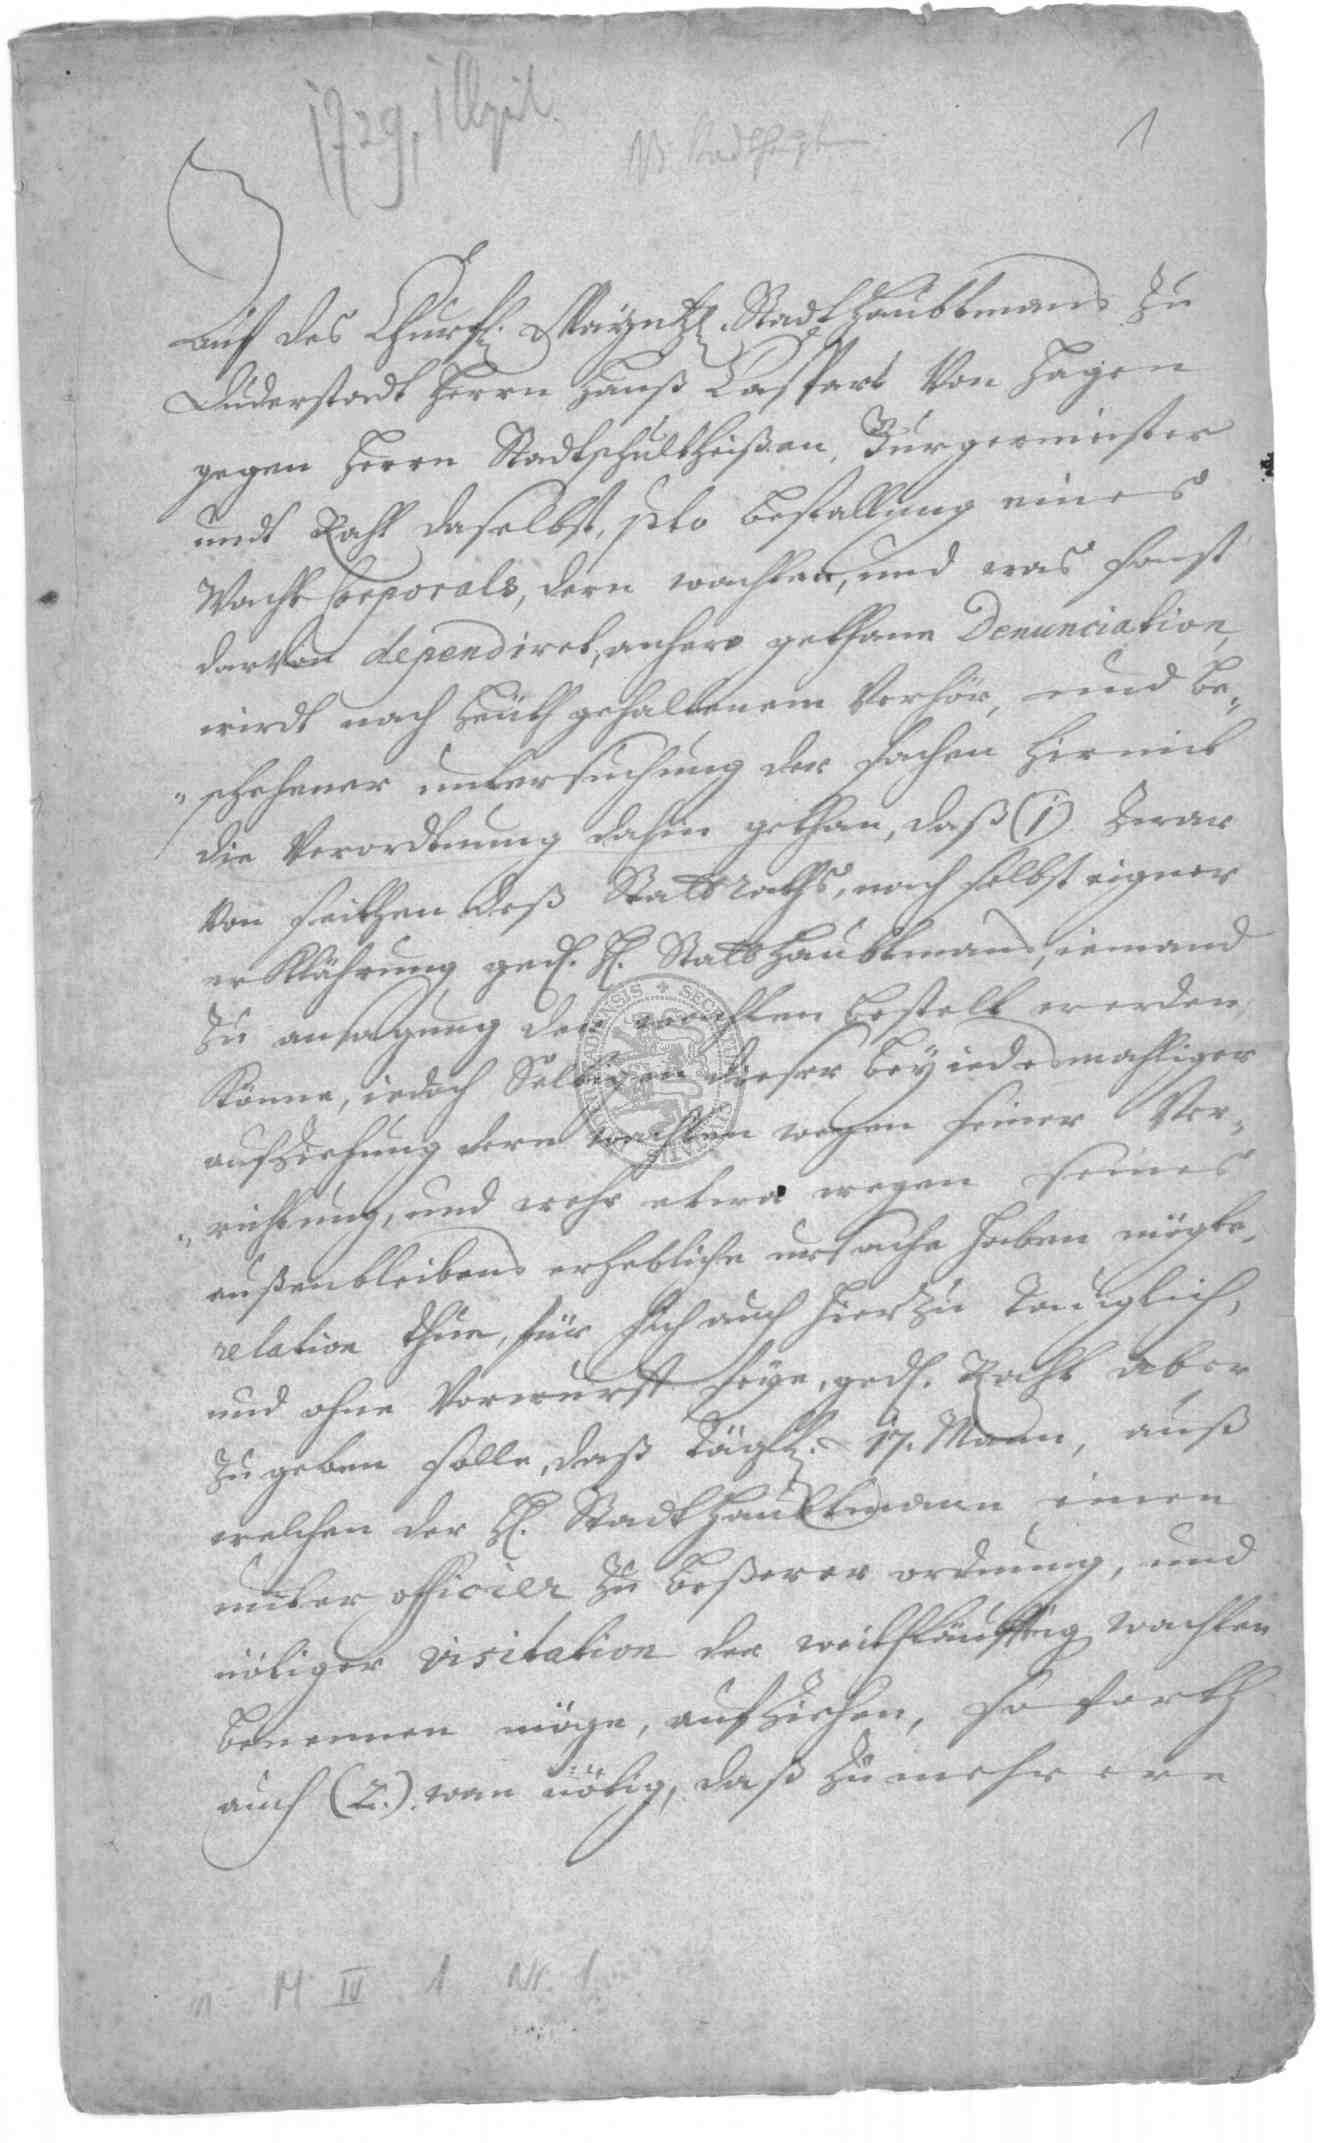 1729, 1 April.
1
Auff des Churfl. Mayntzl. StadtHaubtmans zu
Duderstadt Herrn Hanß Caspart Von Hagen
gegen Herrn Stadtschultheißen, Burgermeister
undt Raht daselbst, pto bestallung eines
Wacht Corporals, dern wachten, und was sonst
darvon dependiret, anhero gethane Denunciation,
wirdt nach heüth gehaltenem Verhör, und be„
„schehener untersuchung der sachen hiermit
die Verordtnung dahin gethan, daß (1) zwar
von seithen deß Stattraths, nach selbst eigner
erKlährung ged. H. StattHaubtmans, iemand
zu ansagung der wachten bestelt werden
Könne, iedoch Selbigem dieser bey iedesmahliger
aufziehung dern wachten wegen seiner Ver„
„richtung, und wehr etwa wegen seines
außenbleibens erhebliche ursache haben mögte,
relation thue, für sich auch hierzu Tauglich,
und ohne Vorwurff seye, ged. Raht aber
zugeben solle, daß Tägl. 17. Mann, auß
welchen der H. StadtHaubtmann einen
unter officier zu beßerer ordnung, und
nötiger visitation der weithläufftig wachten
benennen möge, aufziehen, so forth
auch (2.) wan nötig, daß zu mehrere
M IV 1 Nr. 1